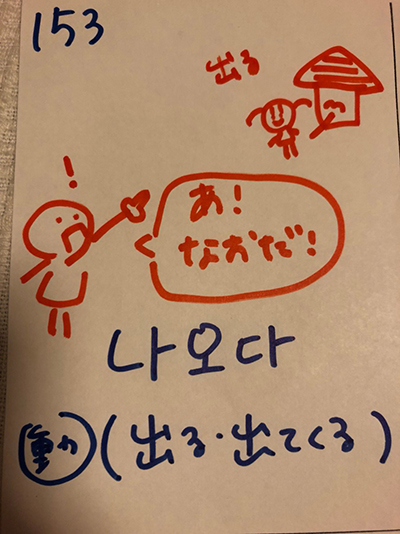 153
出る
!
あ!
なおだ!
나오다
動 (出る・出てくる)